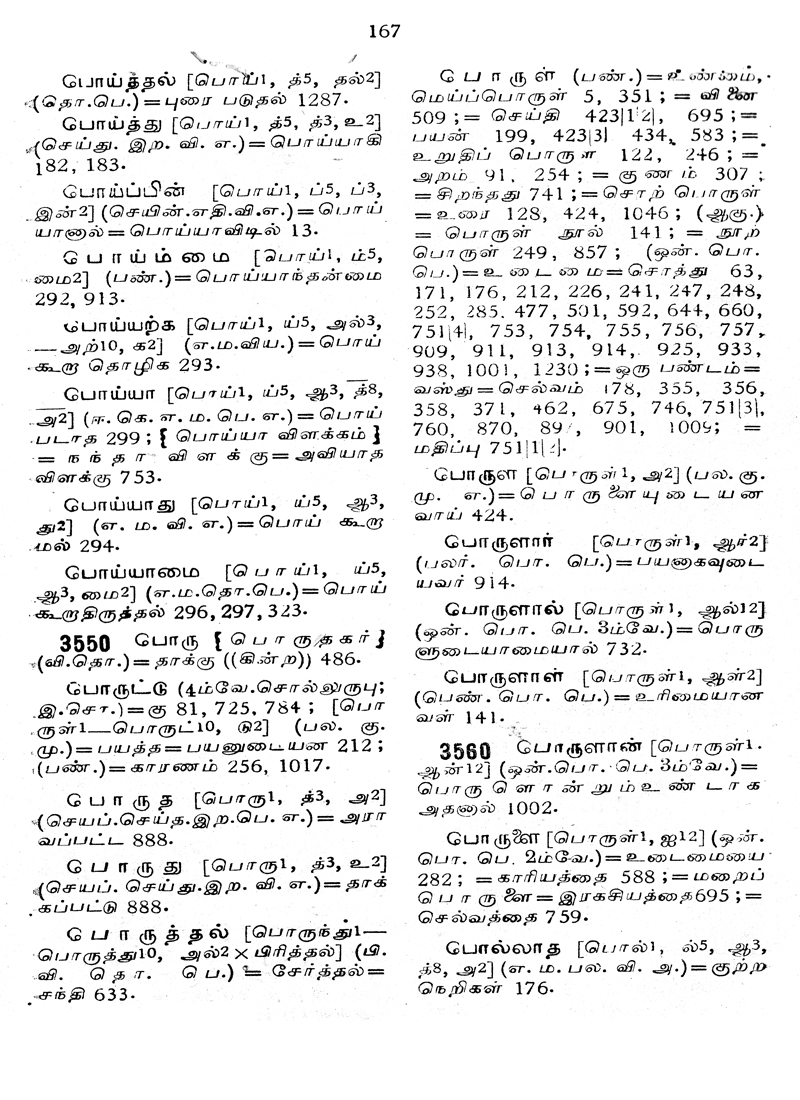 167
பொய்த்தல் [பொய்1, த்5, தல்2]
(தொ.பெ.)=புரை படுதல் 1287.
பொய்த்து [பொய்1, த்5, த்3, உ2]
(செய்து. இற. வி. எ.)=பொய்யாகி
182, 183.
பொய்ப்பின் [பொய்1, ப்5, ப்3,
இன்2] (செயின்.எதி.வி.எ.)=பொய்
யானால்=பொய்யாவிடில் 13.
பொய்ம்மை [பொய்1, ம்5,
மை2] (பண்.)=பொய்யாந்தன்மை
292, 913.
பொய்யற்க [பொய்1, ய்5, அல்3,
—அற்10, க2] (எ.ம.விய.)=பொய்
கூறு தொழிக 293.
பொய்யா [பொய்1, ய்5, ஆ3, த்8,
அ2] (ஈ. கெ. எ. ம. பெ. எ.)=பொய்
படாத 299; { பொய்யா விளக்கம் }
=நந்தா விளக்கு=அவியாத
விளக்கு 753.
பொய்யாது [பொய்1, ய்5, ஆ3,
து2] (எ. ம. வி. எ.)=பொய் கூறு
மல் 294.
பொய்யாமை [பொய்1, ய்5,
ஆ3, மை2] (எ.ம.தொ.பெ.)=பொய்
கூறுதிருத்தல் 296, 297, 323.
3550 பொரு { பொருதகர் }
(வி.தொ.)=தாக்கு ((கின்ற)) 486.
பொருட்டு (4ம்வே.சொல்லுருபு;
இ.சொ.)=கு 81, 725, 784; [பொ
ருள்1—பொருட்10, டு2] (பல. கு.
மு.)=பயத்த=பயனுடையன 212;
(பண்.)=காரணம் 256, 1017.
பொருத [பொரு1, த்3, அ2]
(செயப்.செய்த.இற.பெ. எ.)=அரா
வப்பட்ட 888.
பொருது [பொரு1, த்3, உ2]
(செயப். செய்து.இற. வி. எ.)=தாக்
கப்பட்டு 888.
பொருத்தல் [பொருந்து1—
பொருத்து10, அல்2 × பிரித்தல்] (பி.
வி. தொ. பெ.) = சேர்த்தல்=
சந்தி 633.
பொருள் (பண்.)=உண்மை,
மெய்ப்பொருள் 5, 351; =வினை
509; = செய்தி 423|1 2|, 695; =
பயன் 199, 423|3| 434, 583; =
உறுதிப் பொருள் 122, 246; =
அறம் 91, 254; = குணம் 307;
=சிறந்தது 741; =சொற் பொருள்
=உரை 128, 424, 1046; (ஆகு.)
= பொருள் நூல் 141; = நூற்
பொருள் 249, 857; (ஒன். பொ.
பெ.)=உடைமை=சொத்து 63,
171, 176, 212, 226, 241, 247, 248,
252, 285. 477, 501, 592, 644, 660,
751|4|, 753, 754, 755, 756, 757,
909, 911, 913, 914, 925, 933,
938, 1001, 1230; =ஒரு பண்டம்=
வஸ்து=செல்வம் 178, 355, 356,
358, 371, 462, 675, 746, 751|3|,
760, 870, 901, 1009; =
மதிப்பு 751|1 2|.
பொருள [பொருள்1, அ2] (பல. கு.
மு. எ.)=பொருளையுடையன
வாய் 424.
பொருளார் [பொருள்1, ஆர்2]
(பலர். பொ. பெ.)=பயனாகவுடை
யவர் 914.
பொருளால் [பொருள்1, ஆல்12]
(ஒன். பொ. பெ. 3ம்வே.)=பொரு
ளுடையாமையால் 732.
பொருளாள் [பொருள்1, ஆள்2]
(பெண். பொ. பெ.)=உரிமையான
வள் 141.
3560 பொருளான் [பொருள்1.
ஆன்12] (ஒன்.பொ. பெ. 3ம்வே.)=
பொருளொன்றும்உண்டாக
அதனால் 1002.
பொருளை [பொருள்1, ஐ12] (ஒன்.
பொ. பெ. 2ம்வே.)=உடைமையை
282; =காரியத்தை 588; =மறைப்
பொருளை=இரகசியத்தை695; =
செல்வத்தை 759.
பொல்லாத [பொல்1, ல்5, ஆ3,
த்8, அ2] (எ. ம. பல. வி. அ.)=குற்ற
நெறிகள் 176.